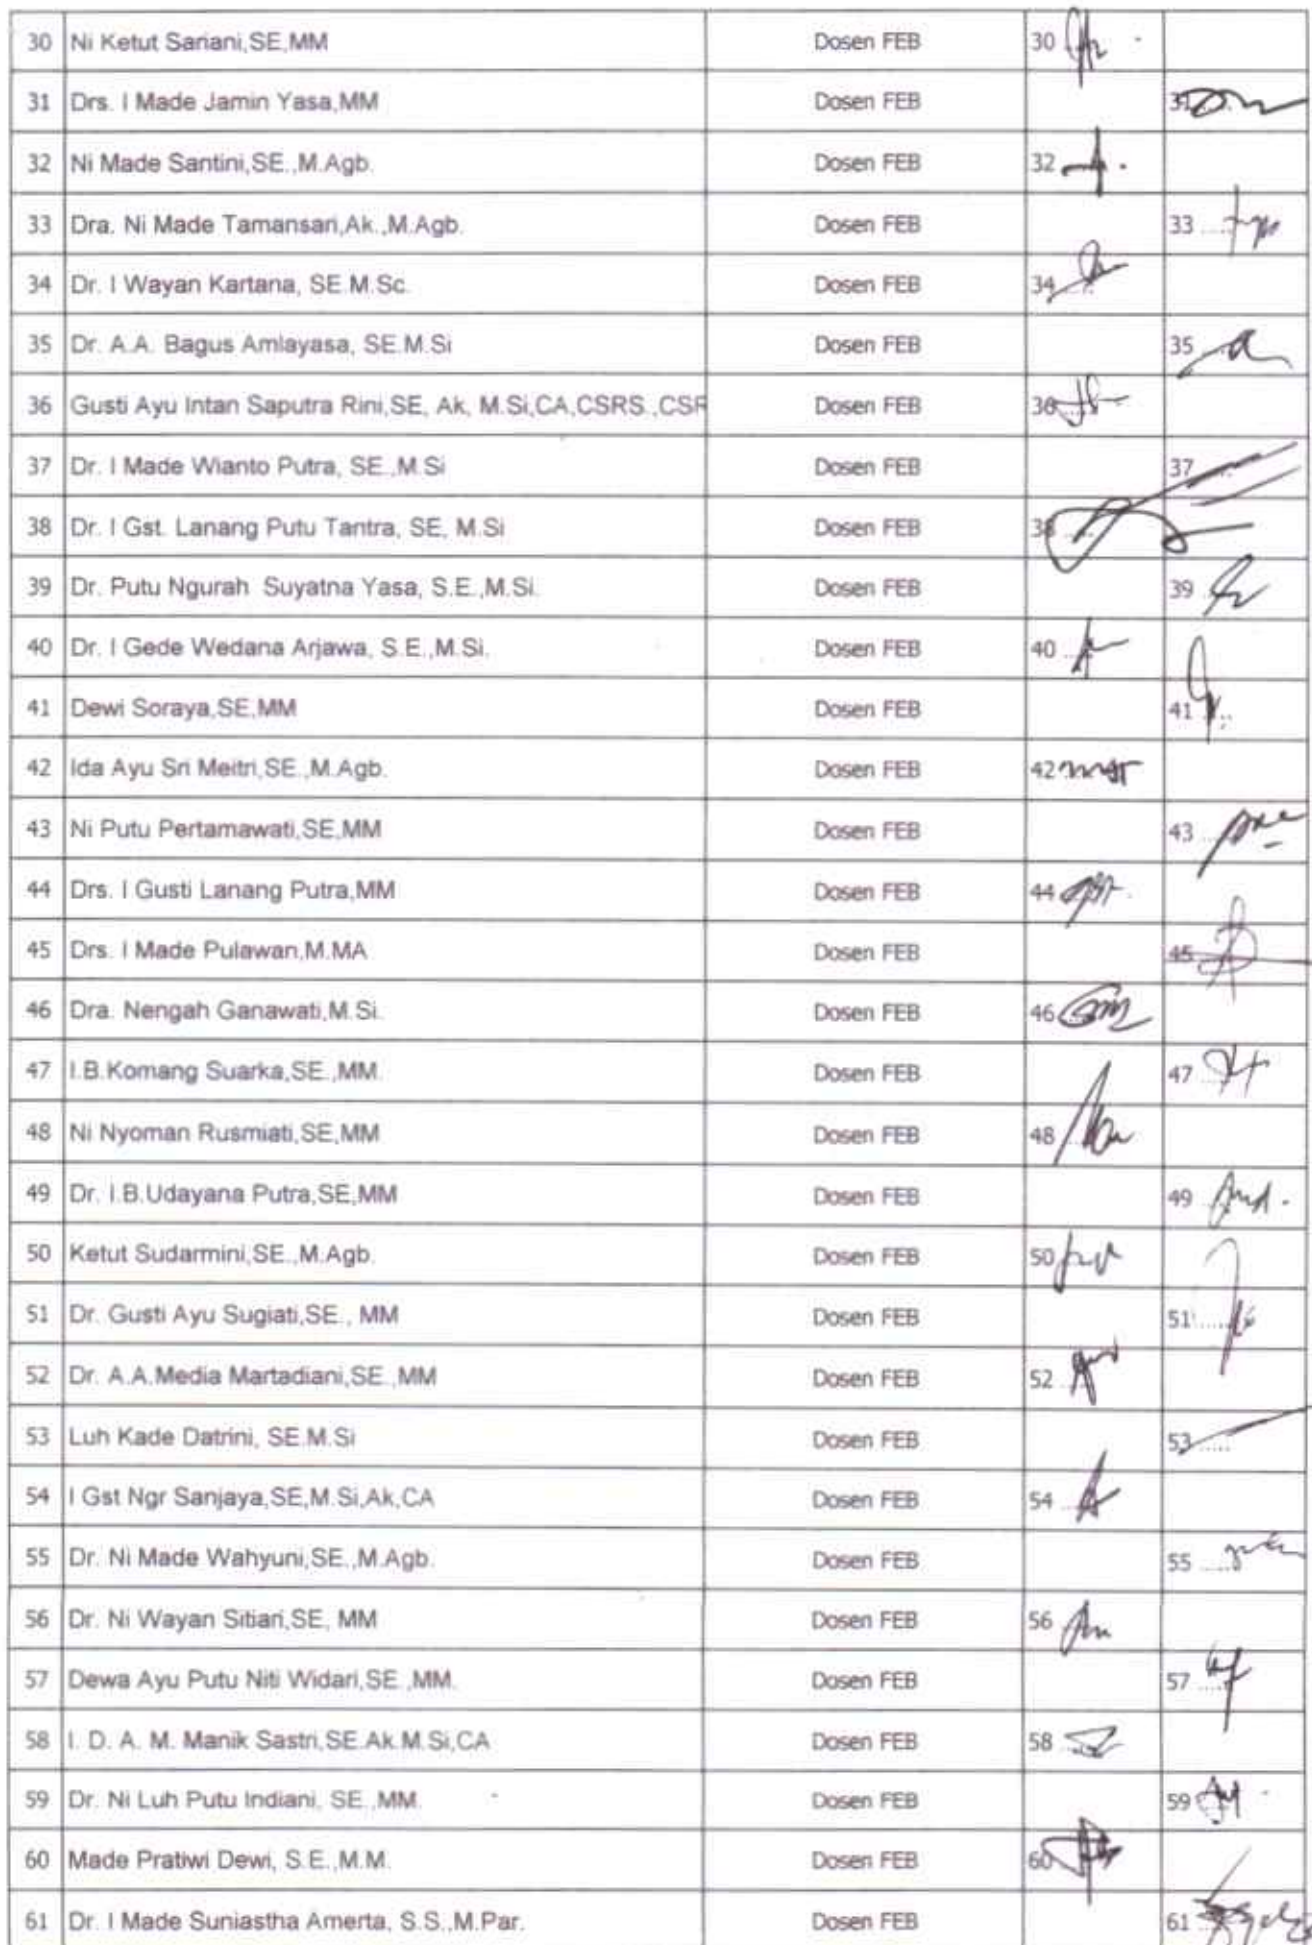 30 Ni Ketut Sariani,SE,MM Dosen FEB 30
31 Drs. I Made Jamin Yasa,MM Dosen FEB 31
32 Ni Made Santini,SE.,M.Agb. Dosen FEB 32
33 Dra. Ni Made Tamansari,Ak.,M.Agb. Dosen FEB 33 ....
34 Dr. I Wayan Kartana, SE.M.Sc. Dosen FEB 34
35 Dr. A.A. Bagus Amlayasa, SE.M.Si Dosen FEB 35
36 Gusti Ayu Intan Saputra Rini,SE, Ak, M.Si,CA,CSRS.,CSR Dosen FEB 36
37 Dr. I Made Wianto Putra, SE.,M.Si Dosen FEB 37 .....
38 Dr. I Gst. Lanang Putu Tantra, SE, M.Si Dosen FEB 38 ....
39 Dr. Putu Ngurah Suyatna Yasa, S.E.,M.Si. Dosen FEB 39
40 Dr. I Gede Wedana Arjawa, S.E.,M.Si. Dosen FEB 40 ...
41 Dewi Soraya,SE,MM Dosen FEB 41 ....
42 Ida Ayu Sri Meitri,SE.,M.Agb. Dosen FEB 42
43 Ni Putu Pertamawati,SE,MM Dosen FEB 43 ...
44 Drs. I Gusti Lanang Putra,MM Dosen FEB 44
45 Drs. I Made Pulawan,M.MA Dosen FEB 45
46 Dra. Nengah Ganawati,M.Si. Dosen FEB 46
47 I.B.Komang Suarka,SE.,MM. Dosen FEB 47 ....
48 Ni Nyoman Rusmiati,SE,MM Dosen FEB 48
49 Dr. I.B.Udayana Putra,SE,MM Dosen FEB 49
50 Ketut Sudarmini,SE.,M.Agb. Dosen FEB 50
51 Dr. Gusti Ayu Sugiati,SE., MM Dosen FEB 51 .....
52 Dr. A.A.Media Martadiani,SE.,MM Dosen FEB 52 ....
53 Luh Kade Datrini, SE.M.Si Dosen FEB 53 .....
54 I Gst Ngr Sanjaya,SE,M.Si,Ak,CA Dosen FEB 54 ...
55 Dr. Ni Made Wahyuni,SE.,M.Agb. Dosen FEB 55 .....
56 Dr. Ni Wayan Sitiari,SE, MM Dosen FEB 56
57 Dewa Ayu Putu Niti Widari,SE.,MM. Dosen FEB 57 ....
58 I. D. A. M. Manik Sastri,SE.Ak.M.Si,CA Dosen FEB 58 ....
59 Dr. Ni Luh Putu Indiani, SE.,MM. Dosen FEB 59
60 Made Pratiwi Dewi, S.E.,M.M. Dosen FEB 60
61 Dr. I Made Suniastha Amerta, S.S.,M.Par. Dosen FEB 61